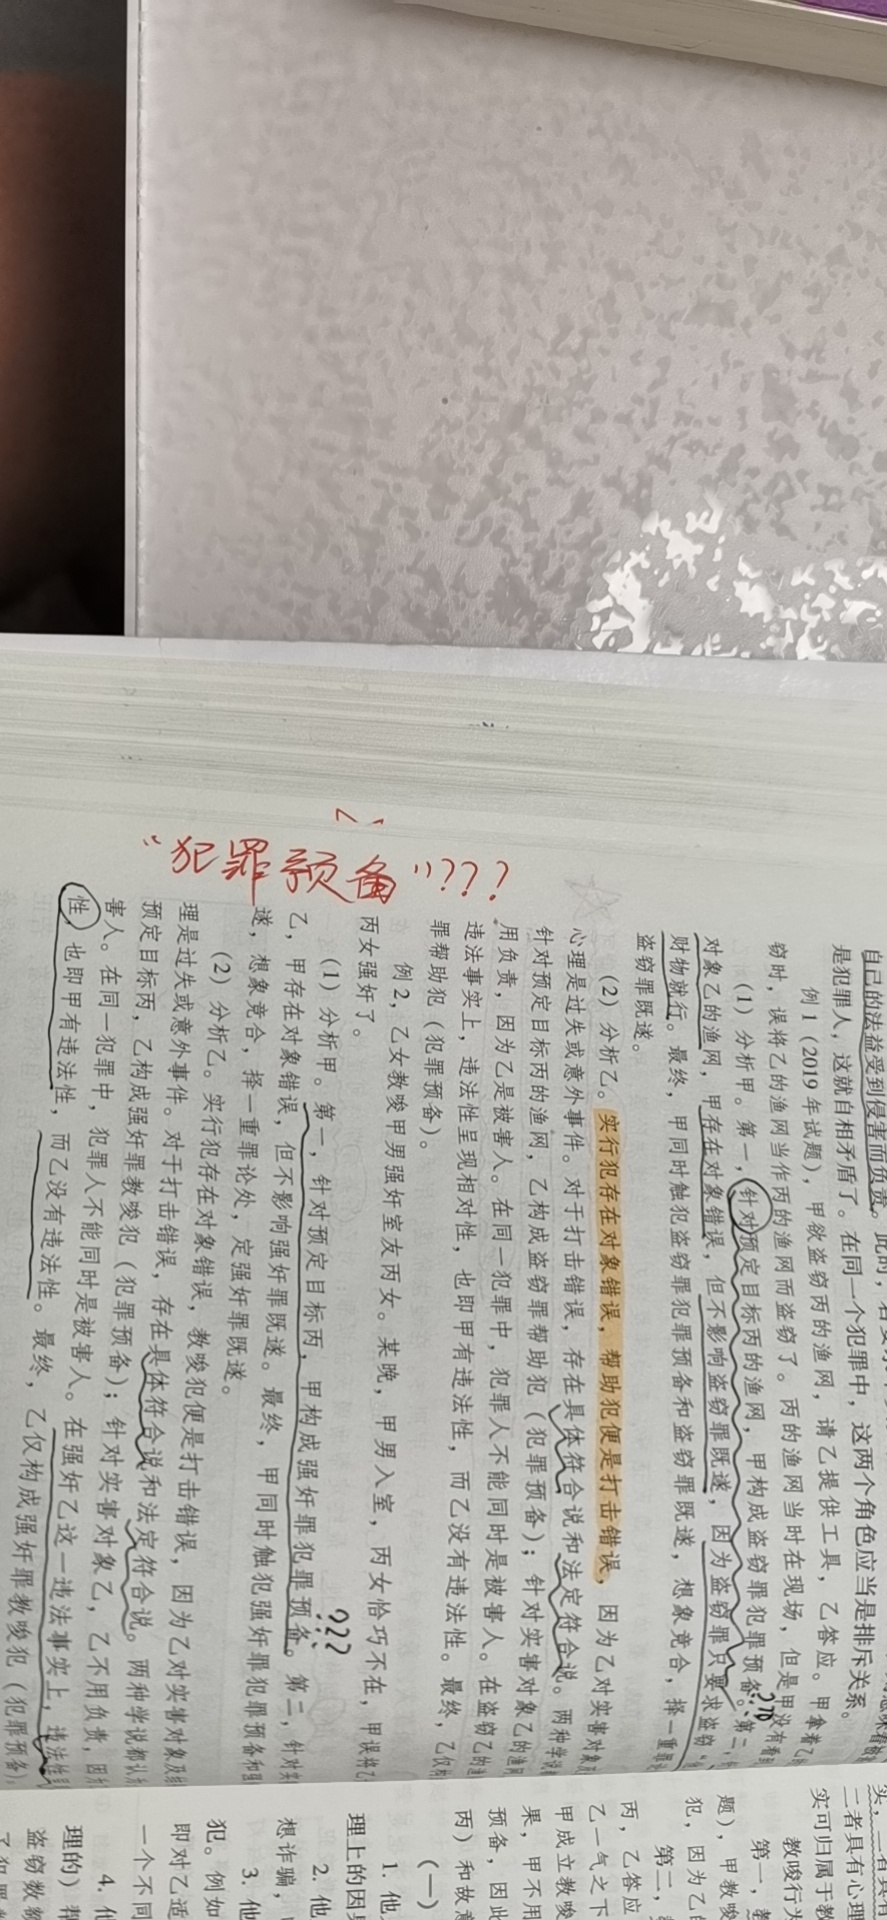 “犯罪预备”???
自己的法益受到侵害而负责。此时,
是犯罪人,这就自相矛盾了。在同一个犯罪中,这两个角色应当是排斥关系。
例1(2019年试题),甲欲盗窃丙的渔网,请乙提供工具,乙答应。甲拿着乙
窃时,误将乙的渔网当作丙的渔网而盗窃了。丙的渔网当时在现场,但是甲没有看
(1)分析甲。第一,针对预定目标丙的渔网,甲构成盗窃罪犯罪预备。第二,
对象乙的渔网,甲存在对象错误,但不影响盗窃罪既遂,因为盗窃罪只要求盗窃
财物就行。最终,甲同时触犯盗窃罪犯罪预备和盗窃罪既遂,想象竞合,择一重罪
盗窃罪既遂。
(2)分析乙。实行犯存在对象错误,帮助犯便是打击错误,因为乙对实害对象
心理是过失或意外事件。对于打击错误,存在具体符合说和法定符合说。两种学说
针对预定目标丙的渔网,乙构成盗窃罪帮助犯(犯罪预备);针对实害对象乙的渔网
用负责,因为乙是被害人。在同一犯罪中,犯罪人不能同时是被害人。在盗窃乙的渔
违法事实上,违法性呈现相对性,也即甲有违法性,而乙没有违法性。最终,乙仅构
罪帮助犯(犯罪预备)。
例2,乙女教唆甲男强奸室友丙女。某晚,甲男入室,丙女恰巧不在,甲误将乙
丙女强奸了。
???
(1)分析甲。第一,针对预定目标丙,甲构成强奸罪犯罪预备。第二,针对实
乙,甲存在对象错误,但不影响强奸罪既遂。最终,甲同时触犯强奸罪犯罪预备和强
遂,想象竞合,择一重罪论处,定强奸罪既遂。
(2)分析乙。实行犯存在对象错误,教唆犯便是打击错误,因为乙对实害对象
理是过失或意外事件。对于打击错误,存在具体符合说和法定符合说。两种学说都认
预定目标丙,乙构成强奸罪教唆犯(犯罪预备);针对实害对象乙,乙不用负责,因
害人。在同一犯罪中,犯罪人不能同时是被害人。在强奸乙这一违法事实上,违法性
性,也即甲有违法性,而乙没有违法性。最终,乙仅构成强奸罪教唆犯(犯罪预备)
实可归属于教
教唆行为
第一,
题),甲教唆
犯,因为乙的
第二,
丙,乙答应
乙一气之下
甲成立教唆
果,甲不用
预备,因此
丙)和故意
(一)
1. 他
理上的因
2. 他
想诈骗,
3. 他
犯。例如
即对乙适
一个不同
4. 他
理的)帮
盗窃数